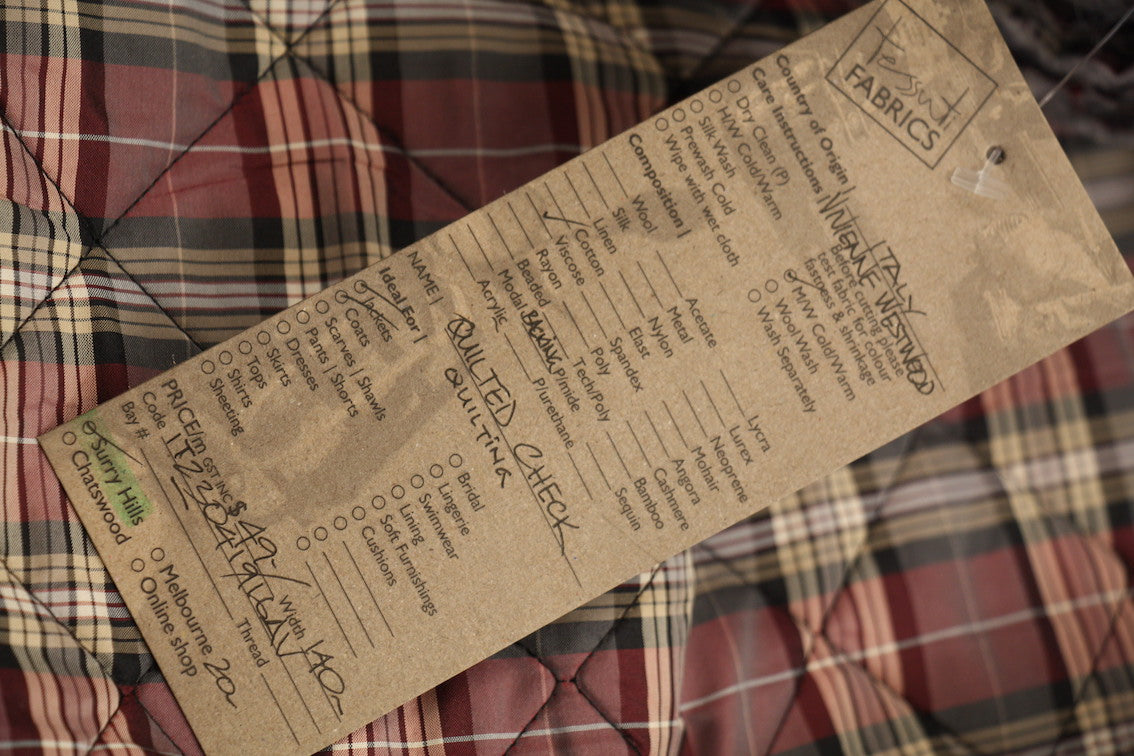 Tessuti
FABRICS
Country of Origin | ITALY
VIVIENNE WESTWOOD
Care Instructions |
Before cutting please
test fabric for colour
fastness & shrinkage
Dry Clean (P)
H/W Cold/Warm
Silk Wash
Prewash Cold
Wipe with wet cloth
M/W Cold/Warm
Wool Wash
Wash Separately
Composition |
Wool
Silk
Linen
Cotton
Viscose
Rayon
Beaded
Modal
Acrylic
Acetate
Metal
Nylon
Elast
Spandex
Poly
Tech/Poly
BACKING P/mide
P/urethane
Lycra
Lurex
Neoprene
Mohair
Angora
Cashmere
Bamboo
Sequin
NAME | QUILTED CHECK
QUILTING
Ideal For |
Jackets
Coats
Scarves | Shawls
Pants | Shorts
Dresses
Skirts
Tops
Shirts
Sheeting
Bridal
Lingerie
Swimwear
Lining
Soft Furnishings
Cushions
PRICE/m GST INC $49- Width 140
Code
Bay # Thread
Surry Hills
Chatswood
Melbourne
Online shop